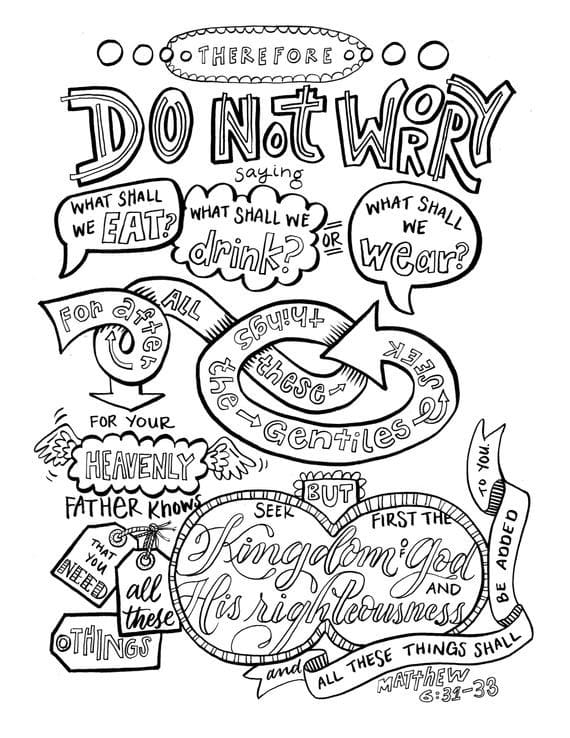 THEREFORE
DO NOt WORRY
saying
WHAT SHALL
WE EAT?
WHAT SHALL WE
drink?
OR
WHAT SHALL
WE
wear?
For after
ALL
these
things
the Gentiles
SEEK
FOR YOUR
HEAVENLY
FATHER KNOWS
THAT
YOU
NEED
all
these
THINGS
BUT
SEEK FIRST THE
Kingdom of God
AND
His righteousness
and
ALL THESE THINGS SHALL
BE ADDED
TO YOU.
MATTHEW
6:31-33